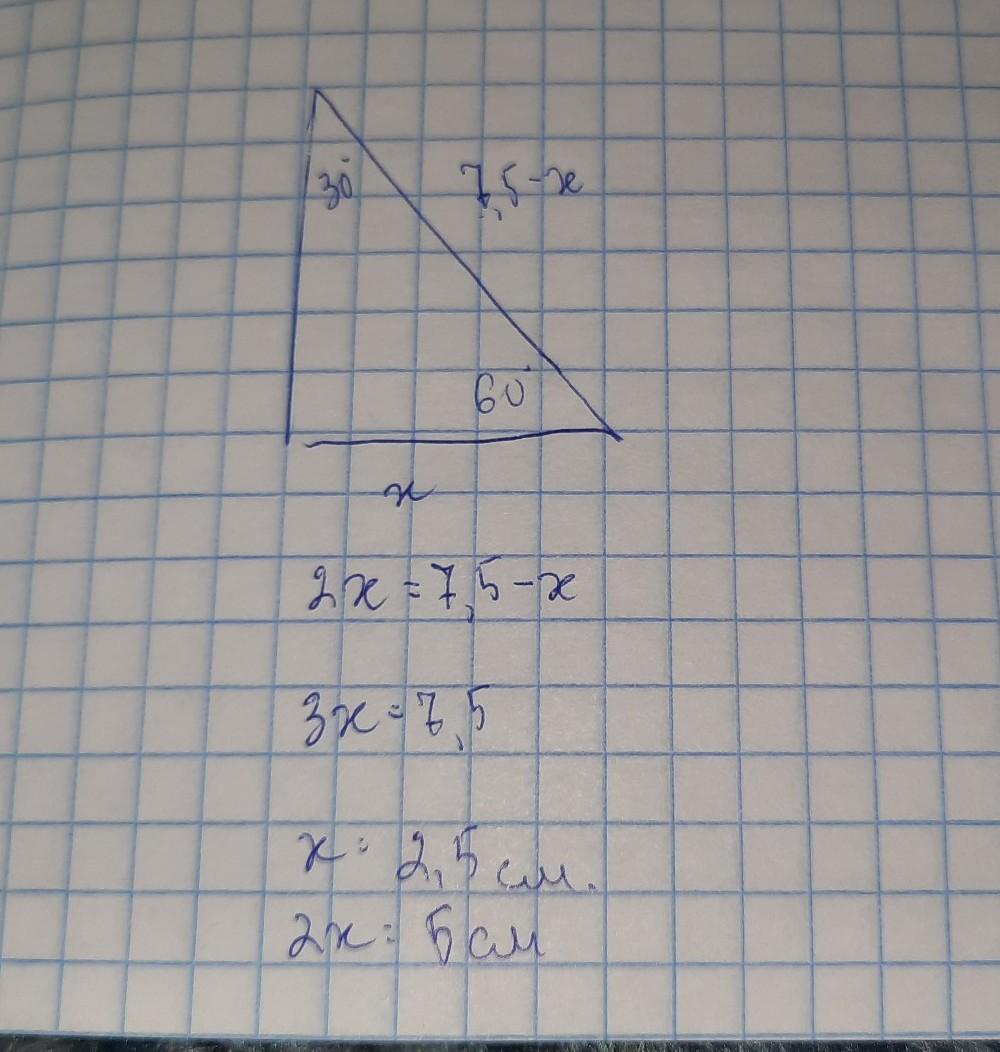 30°
7,5-x
60°
x
2x=7,5-x
3x=7,5
x=2,5 см.
2x=5 см